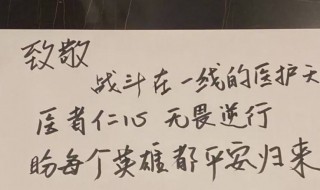 致敬
战斗在一线的医护天
医者仁心 无畏逆行
盼每个英雄都平安归来